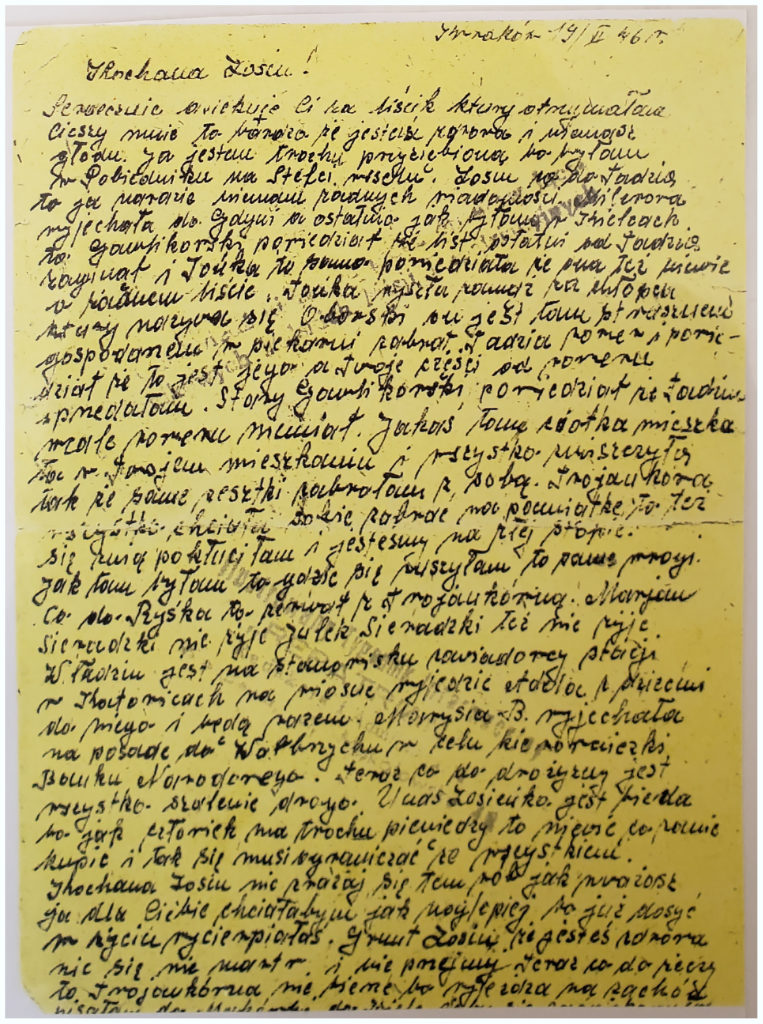 Kraków 19/II 46 r.
Kochana Zosiu!
Serdecznie dziękuję Ci za liścik ktury otrzymałam
Cieszy mnie to bardzo że jesteś zdrora i niemasz
głodu. Ja jestem trochu przyziębioną bo byłam
w Pobiedniku na Stefci weselu. Zosiu co do Tadzia
to ja narazie niemam żadnych wiadomości. Milerora
wyjechała do Gdyni a ostatnio jak byłam w Kielcach
to Gawlikorski poriedział że list ostatni od Tadzia
zaginął i Jońka to samo poriedziała że ona też niewie
o żadnem liście. Jońka wyszła zamąż za chłopca
ktury nazywa się Oborski on jest tam strasznem
gospodarzem w piekarni zabrał Tadzia rower i porie-
dział że to jest jego a Twoje części od roweru
sprzedałam. Stary Gawlikorski poriedział że Tadziu
wcale roweru niemiał. Jakaś tam ciotka mieszka
to w Twojem mieszkaniu i wszystko zniszczyła
tak że same resztki zabrałam z sobą. Trojankora
wszystko chciała sobie zabrać na pamiątkę to też
się znią pokłuciłam i jesteśmy na złej stopie.
Jak tam byłam to gdzie się ruszyłam to same wrogi.
Co do Ryśka to zerwał z Trojankórną. Marjan
Sieradzki nie żyje Julek Sieradzki też nie żyje
Władziu jest na stanorisku zawiadorcy stacji
w Katoricach na wiosnę wyjedzie Adela z dziećmi
do niego i będą razem. Marysia B. wyjechała
na posadę do Wałbrzychu w celu kierorniczki
Banku Narodorego. Teraz co do drożyzny jest
wszystko szalenie drogo. U nas Zosieńko jest bieda
bo jak człoriek ma trochu pieniędzy to niewie co zanie
kupić i tak się musi ograniczać ze wszystkiem.
Kochana Zosiu nie zrażaj się tem rób jak uważasz
ja dla Ciebie chciałabym jak najlepiej bo już dosyć
w życiu wycierpiałaś. Grunt Zosiu że jesteś zdrora
nic się nie martw i nie przejmuj Teraz co do rzeczy
to Trojankórna nie bierze bo wyjeżdża na zachód
pisałam do